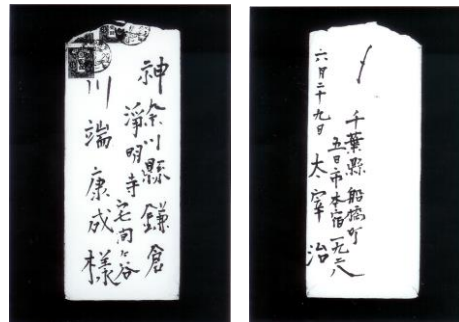 神奈川縣鎌倉
淨明寺宅間ヶ谷
川端康成樣
千葉縣船橋町
五日市本宿一九二八
六月二十九日 太宰治